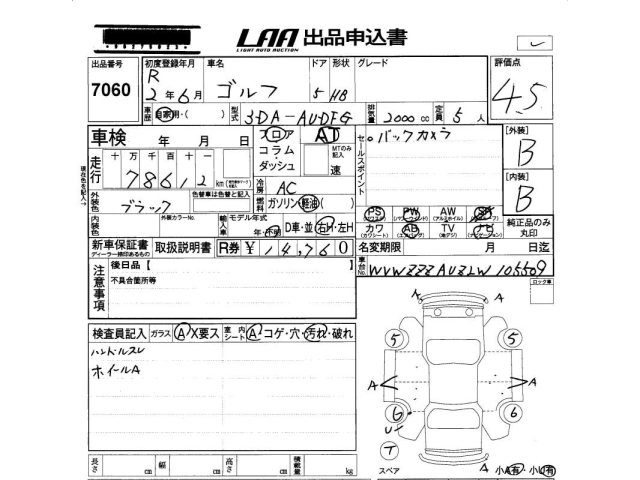 LAA 出品申込書
LIGHT AUTO AUCTION
出品番号 初度登録年月 車名 ドア 形状 グレード 評価点
7060 R 2年6月 ゴルフ 5 HB 4.5
車歴 自家用・( ) 型式 3DA-AUDFG 排気量 2000cc 定員 5人
車検 年 月 日 フロア コラム・ダッシュ AT MTのみ記入 速
セールスポイント 。バックカメラ
[外装] B
走行 十万千百十一 78612 km
冷房 AC
[内装] B
外装色 ブラック 色替車は色替と記入 燃料 ガソリン・軽油( )
PS PW AW SR
純正品のみ丸印
内装色 外装カラーNo. 輸入車 モデル年式 年・不明 D車・並 右H・左H
カワ AB TV ナビ
新車保証書 取扱説明書 R券 ¥14,760 名変期限 月 日迄
ディーラー捺印あるもの
車台No. WVWZZZAUZLW105509
ロック車
注意事項 後日品【
不具合箇所等
検査員記入 ガラス A X要ス 室内シート A コゲ・穴・汚れ・破れ
ハンドルスレ
ホイールA
A A
5 5
A A
G 6
T
スペア A 小A有・小U有
長さ cm 幅 cm 高さ cm 積載量 kg